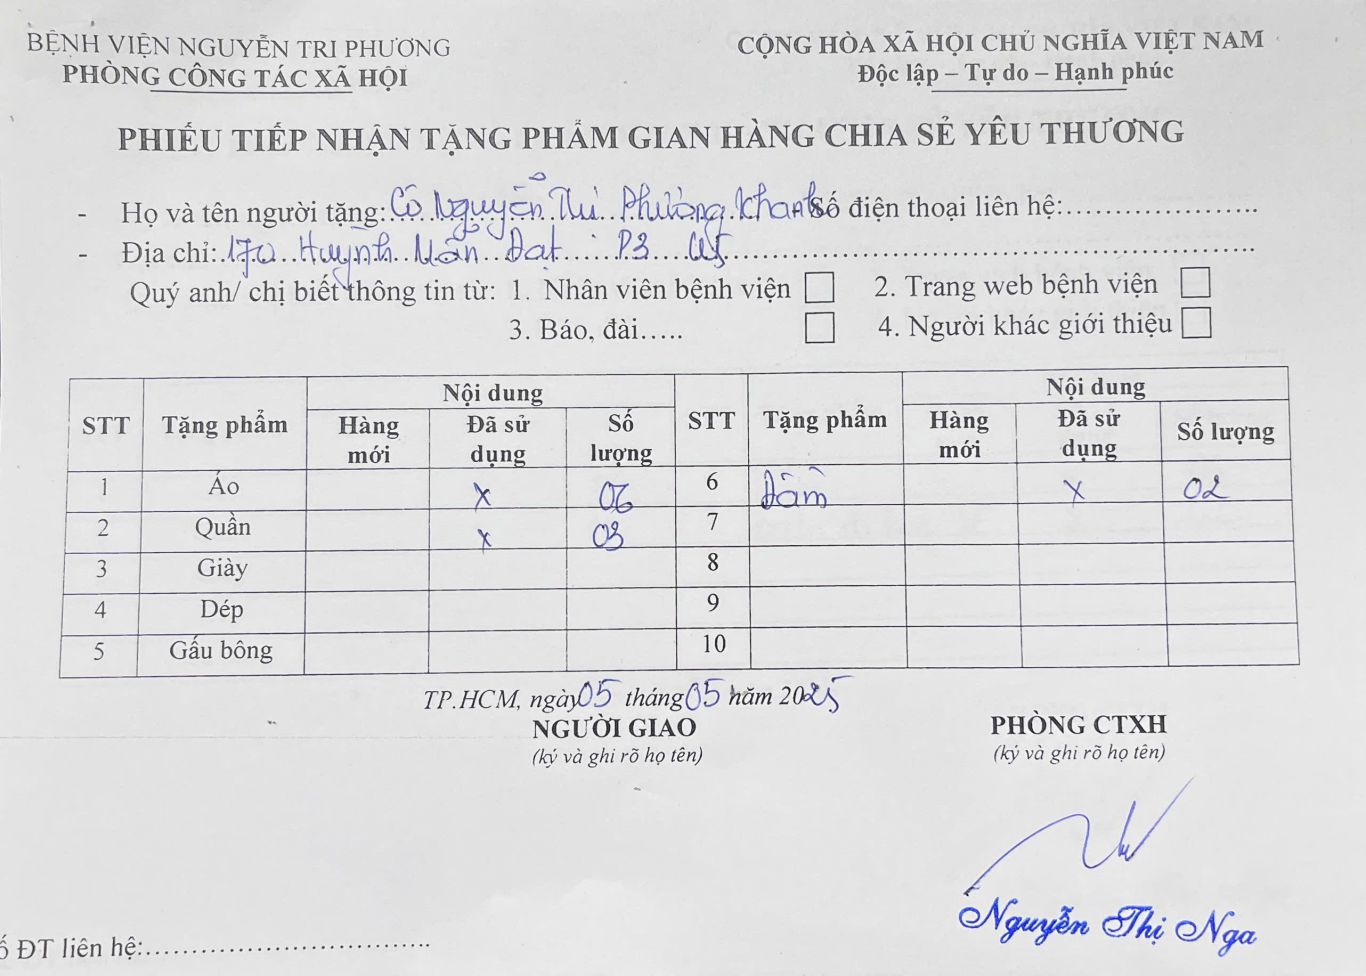 BỆNH VIỆN NGUYỄN TRI PHƯƠNG
PHÒNG CÔNG TÁC XÃ HỘI
CỘNG HÒA XÃ HỘI CHỦ NGHĨA VIỆT NAM
Độc lập – Tự do – Hạnh phúc
PHIẾU TIẾP NHẬN TẶNG PHẨM GIAN HÀNG CHIA SẺ YÊU THƯƠNG
- Họ và tên người tặng: Cô Nguyễn Thị Phường Khanh Số điện thoại liên hệ:....................
- Địa chỉ: 170 Huỳnh Mẫn Đạt P3 Q5
Quý anh/ chị biết thông tin từ: 1. Nhân viên bệnh viện ☐ 2. Trang web bệnh viện ☐
3. Báo, đài..... ☐ 4. Người khác giới thiệu ☐
STT Tặng phẩm Nội dung STT Tặng phẩm Nội dung
Hàng mới Đã sử dụng Số lượng Hàng mới Đã sử dụng Số lượng
1 Áo x 06 6 Đầm x 02
2 Quần x 03 7
3 Giày 8
4 Dép 9
5 Gấu bông 10
TP.HCM, ngày 05 tháng 05 năm 2025
NGƯỜI GIAO PHÒNG CTXH
(ký và ghi rõ họ tên) (ký và ghi rõ họ tên)
Nguyễn Thị Nga
ố ĐT liên hệ:..............................